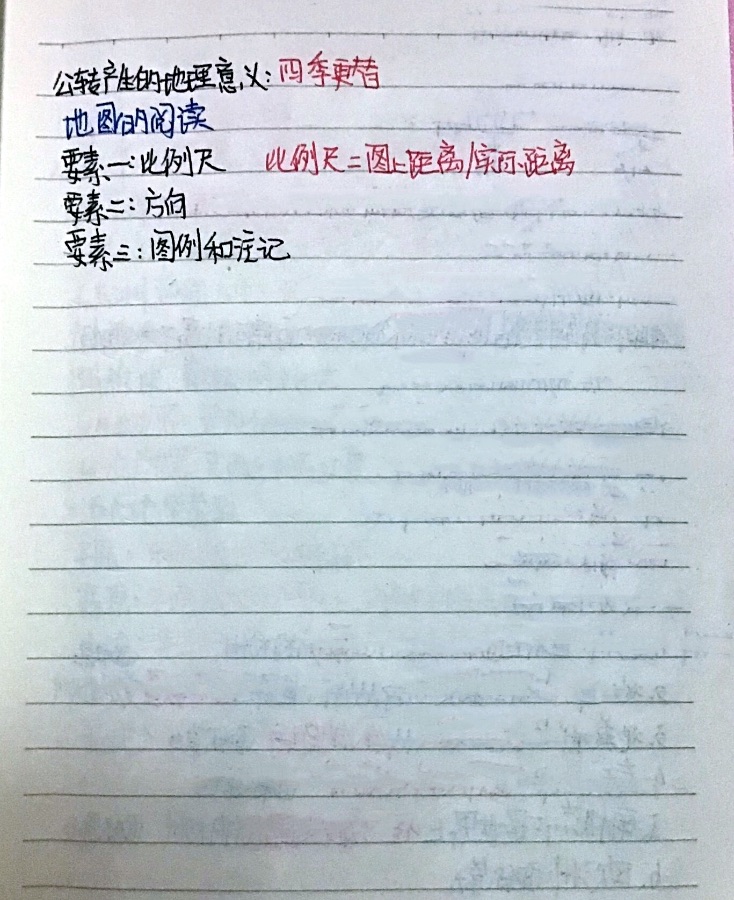 公转产生的地理意义:四季更替
地图的阅读
要素一:比例尺 比例尺=图上距离/实际距离
要素二:方向
要素三:图例和注记